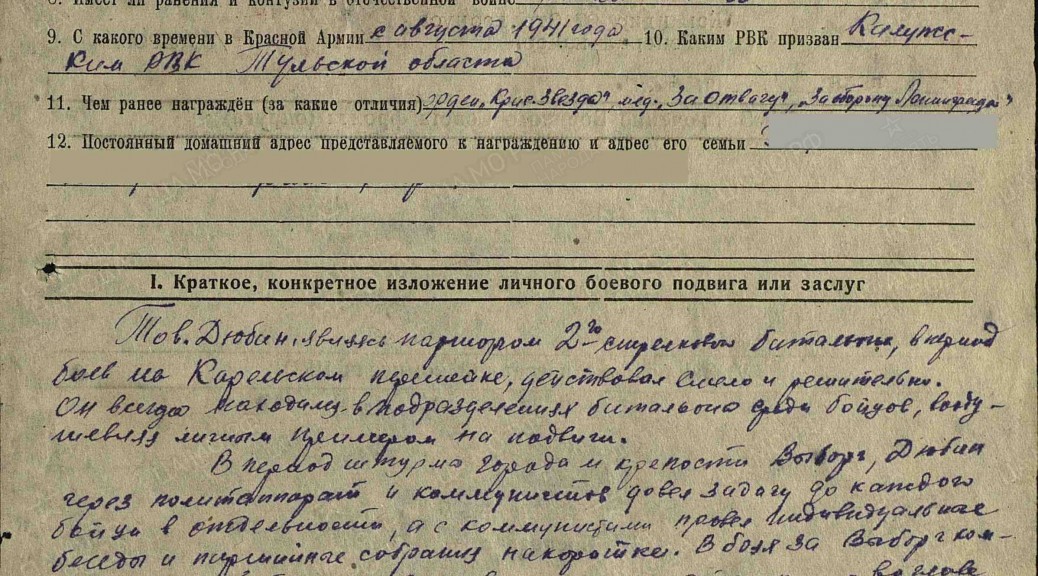 8. Имеет ли ранения и контузии в отечественной войне
9. С какого времени в Красной Армии с августа 1941 года 10. Каким РВК призван Калужс-
ким РВК Тульской области
11. Чем ранее награждён (за какие отличия) орден „Крас. Звезда" мед. „За отвагу", „За оборону Ленинграда"
12. Постоянный домашний адрес представляемого к награждению и адрес его семьи
I. Краткое, конкретное изложение личного боевого подвига или заслуг
Тов. Дюбин, являясь парторгом 2го стрелкового батальона, в период
боев на Карельском перешейке, действовал смело и решительно.
Он всегда находился в подразделениях батальона среди бойцов, вооду-
шевляя личным примером на подвиги.
В период штурма города и крепости Выборг, Дюбин
через политаппарат и коммунистов довел задачу до каждого
бойца в отдельности, а с коммунистами провел индивидуальные
беседы и партийные собрания накоротке. В боях за Выборг ком-
во главе